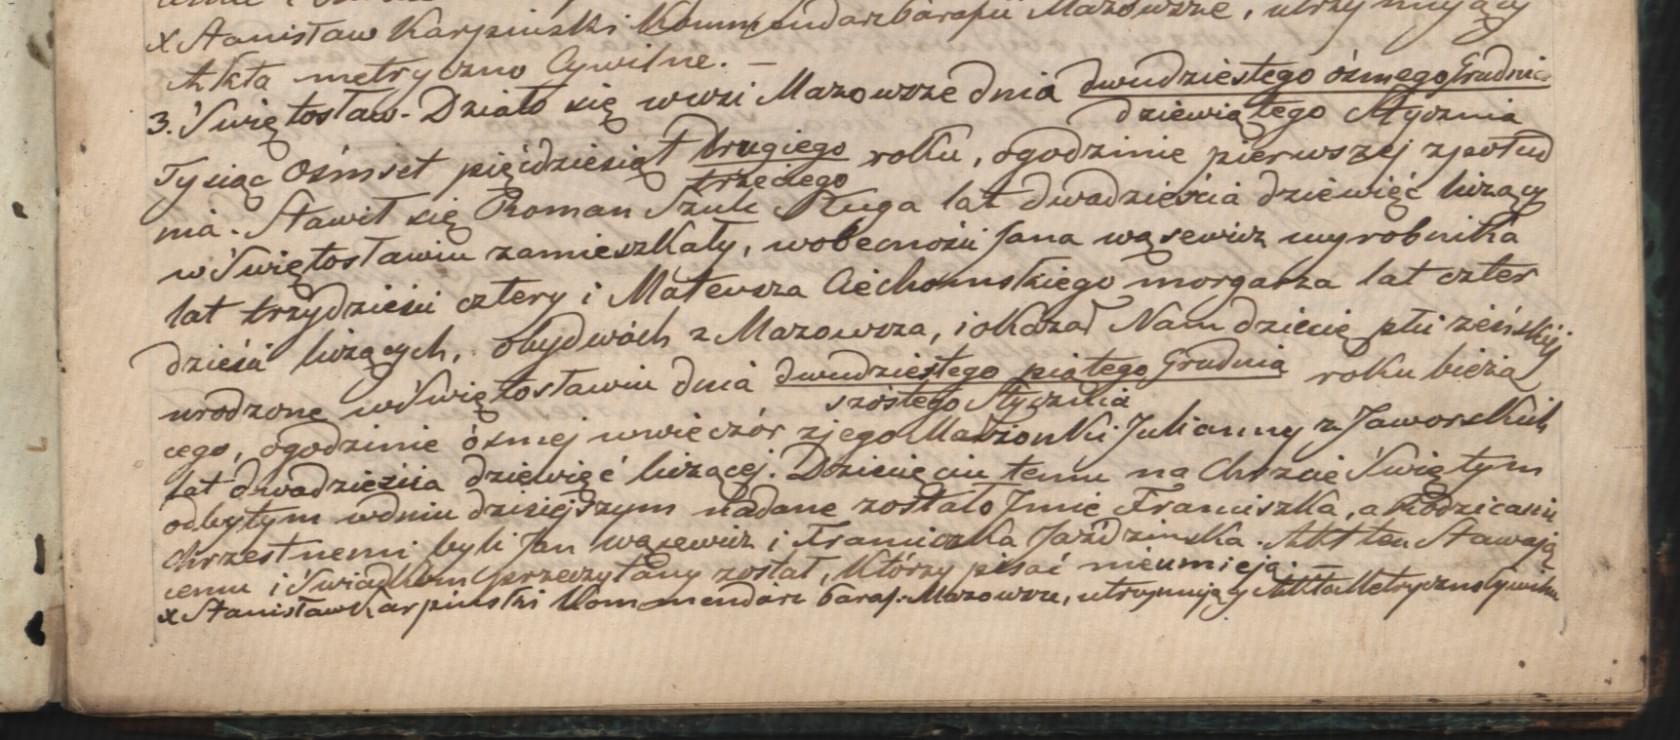 x Stanisław Karpinski Kommendarz Parafii Mazowsze, utrzymujący
Akta metryczno Cywilne. –
3. Świętosław. Działo się w wsi Mazowsze dnia dwudziestego ósmego Grudnia
dziewiątego Stycznia
Tysiąc Ośmset pięćdziesiąt drugiego roku, o godzinie pierwszej z połud
trzeciego
nia. Stawił się Roman Szulc Sługa lat dwadzieścia dziewięć liczący
w Świętosławiu zamieszkały, w obecności Jana Wąsewicz wyrobnika
lat trzydzieści cztery i Mateusza Ciechomskiego morgarza lat czter
dzieści liczących, obydwóch z Mazowsza, i okazał Nam dziecię płci żeńskiéj
urodzone w Świętosławiu dnia dwudziestego piątego Grudnia roku bieżą
szóstego Stycznia
cego, o godzinie ósmej wwieczór z jego Małżonki Julianny z Jaworskich
lat dwadzieścia dziewięć liczącej. Dziecięciu temu na Chrzcie Świętym
odbytym w dniu dzisiejszym nadane zostało Jmie Franciszka, a Rodzicami
Chrzestnemi byli Jan Wąsewicz i Franciszka Jaździnska. Akt ten Stawają
cemu i Świadkom przeczytany został, Którzy pisać nieumieją. –
x Stanisław Karpinski Kommendarz Paraf. Mazowsze, utrzymujący Akta Metryczno Cywilne